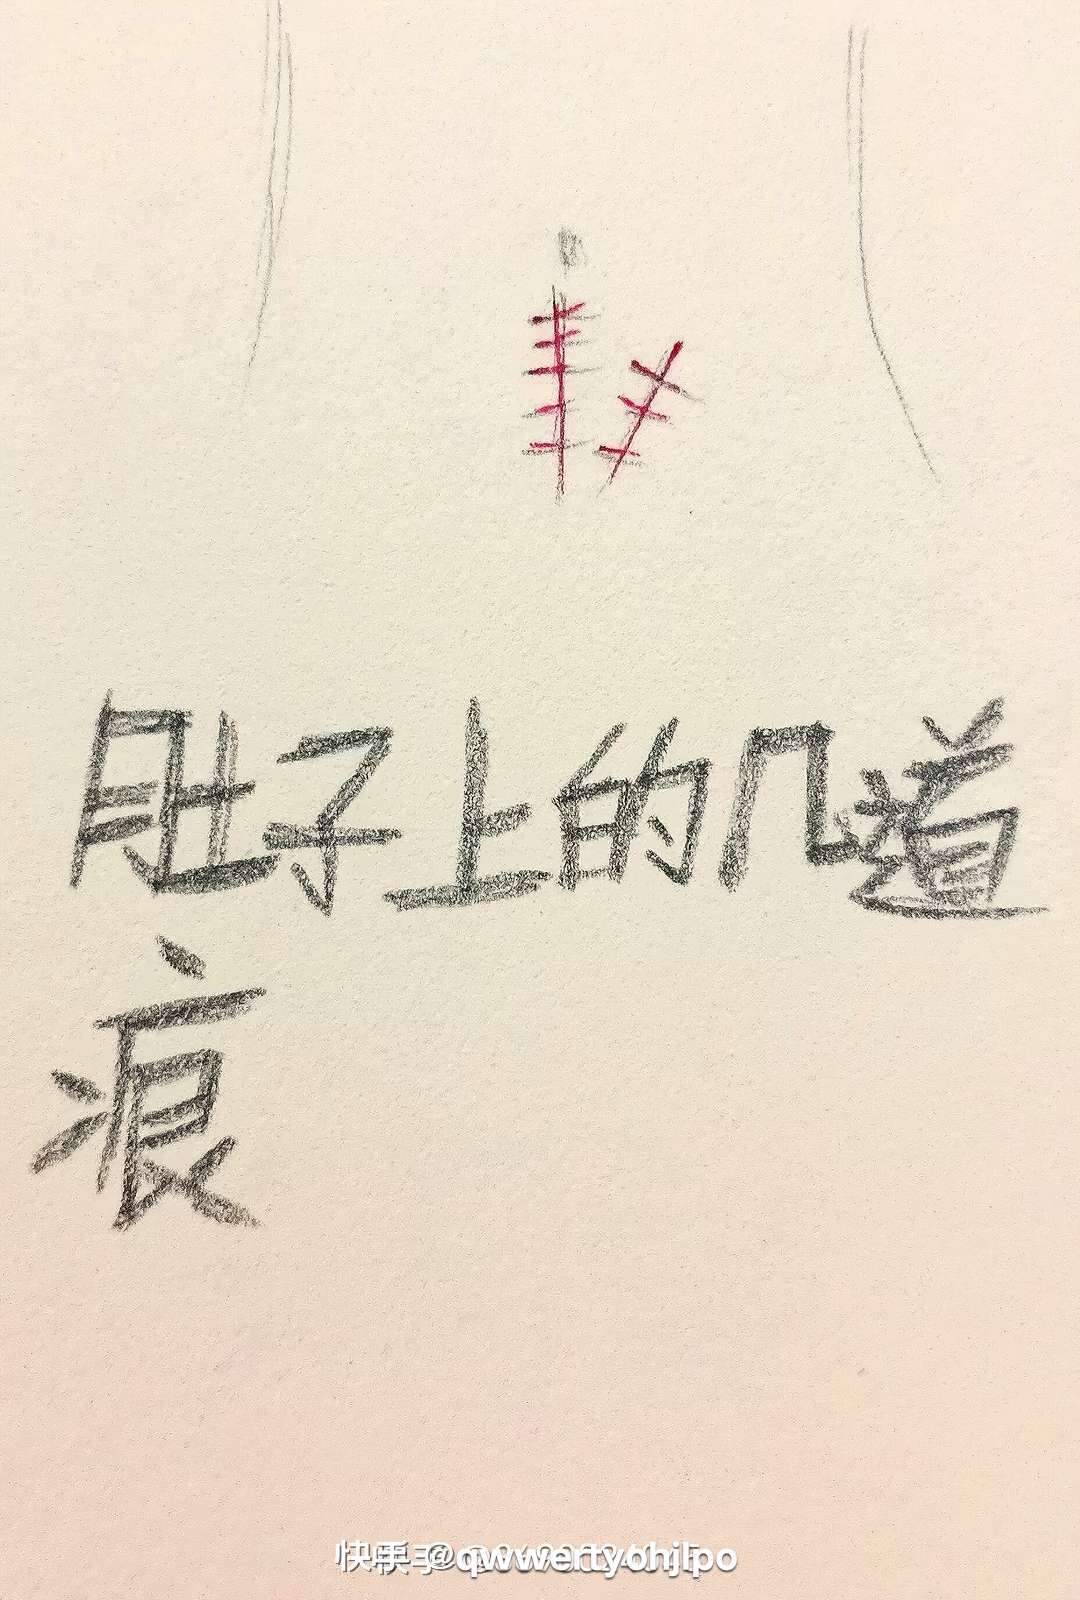 肚子上的几道
痕
快手
@qwwertyohjlpo